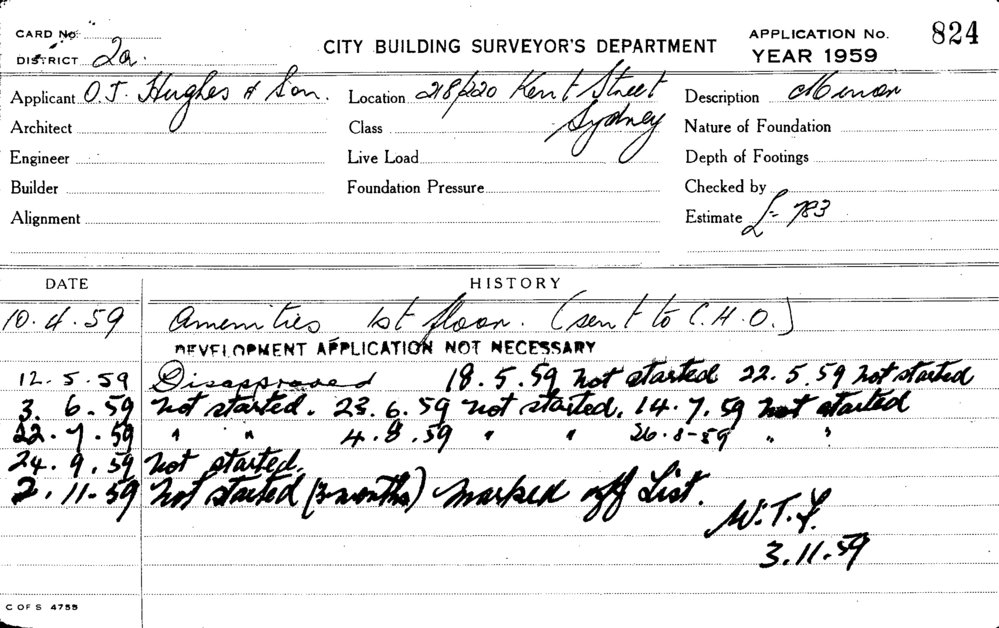 CARD No.
DISTRICT 2a.
CITY BUILDING SURVEYOR'S DEPARTMENT
APPLICATION No. 824
YEAR 1959
Applicant O.J. Hughes & Son. Location 218/220 Kent Street Sydney Description Minor
Architect Class Nature of Foundation
Engineer Live Load Depth of Footings
Builder Foundation Pressure Checked by
Alignment Estimate £- 783
DATE HISTORY
10.4.59 Amenities 1st floor. (sent to C.H.O.)
DEVELOPMENT APPLICATION NOT NECESSARY
12.5.59 Disapproved 18.5.59 not started 22.5.59 not started
3.6.59 not started. 23.6.59 not started. 14.7.59 not started
22.7.59 " " 4.8.59 " " 26.8-59 " "
24.9.59 not started.
2.11.59 not started (3 months) marked off List.
W.T.F.
3.11.59
C OF S 4755